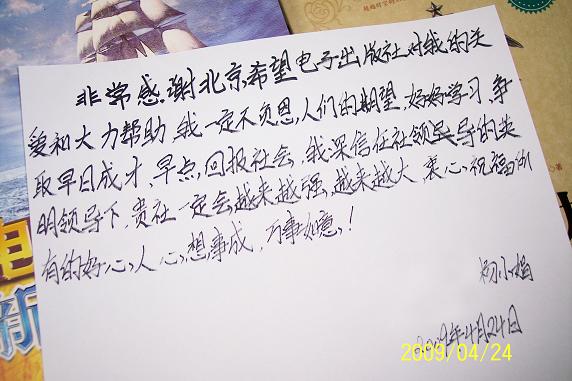 非常感谢北京希望电子出版社对我的关
爱和大力帮助,我一定不负恩人们的期望,好好学习,争
取早日成才,早点,回报社会,我深信任社领导的英
明领导下,贵社一定会越来越强,越来越大,衷心祝福所
有的好心人心想事成,万事如意!
杨小娟
2009年4月24日
2009/04/24
电
新